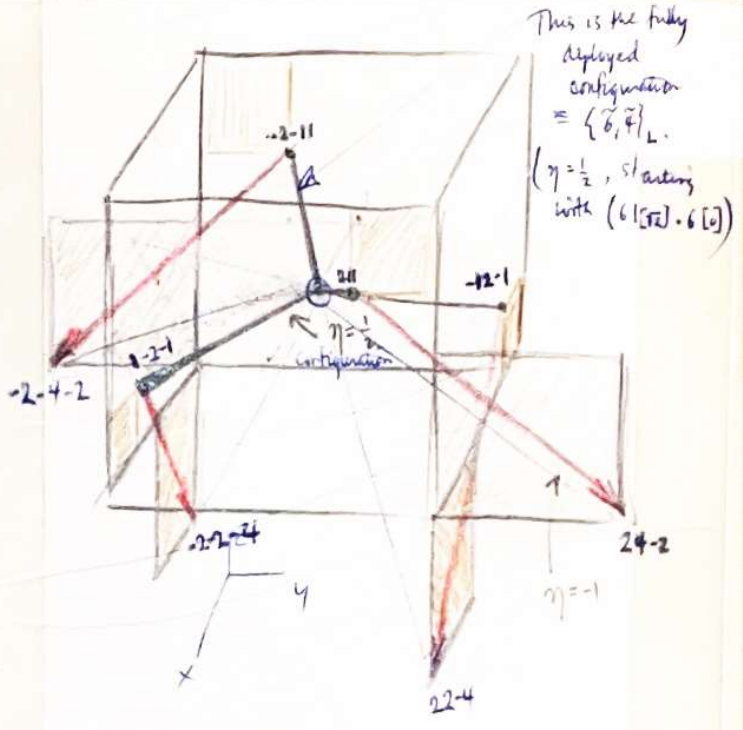 This is the fully
deployed
configuration
= {6̃,4̃}L.
(η = 1/2, starting
with (6|[√2]·6[0])
-2-11
211
-12-1
η = 1/2
configuration
1-2-1
-2-4-2
24-2
y
η = -1
x
22-4